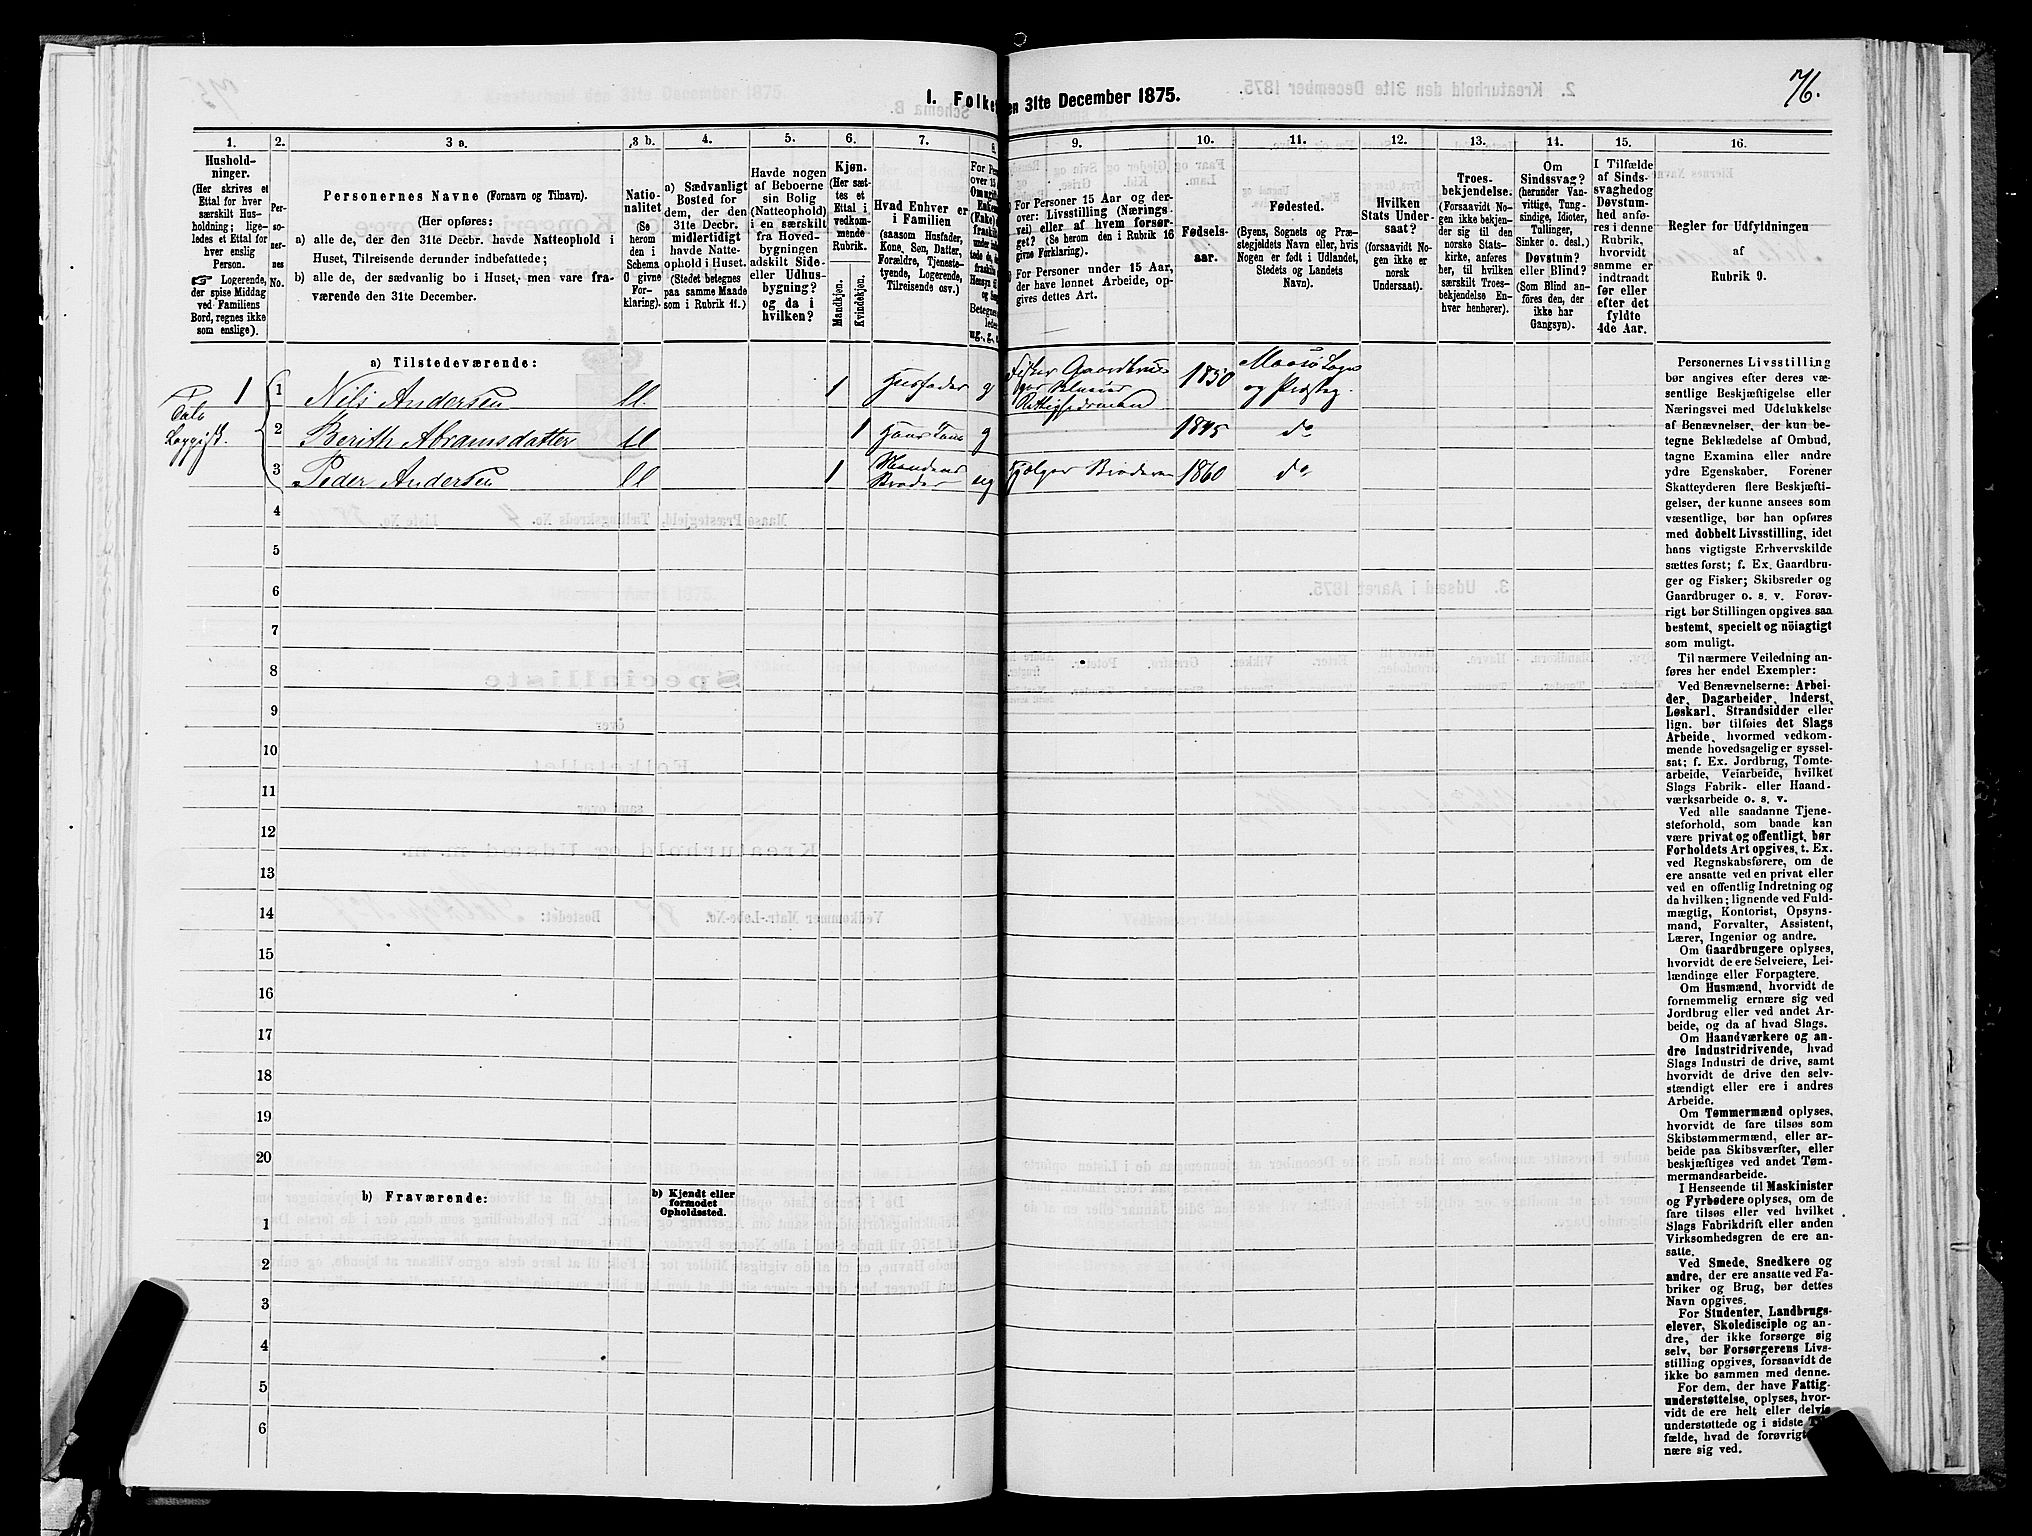 76.
I. Folke en 31te December 1875.
1. 2. 3 a. 3 b. 4. 5. 6. 7. 8. 9. 10. 11. 12. 13. 14. 15. 16.
Hushold-
ninger.
(Her skrives et
Ettal for hver
særskilt Hus-
holdning; lige-
ledes et Ettal for
hver enslig
Person.
☞ Logerende,
der spise Middag
ved Familiens
Bord, regnes ikke
som enslige).
Per-
so-
ner-
nes
No.
Personernes Navne (Fornavn og Tilnavn).
(Her opføres:
a) alle de, der den 31te Decbr. havde Natteophold i
Huset, Tilreisende derunder indbefattede;
b) alle de, der sædvanlig bo i Huset, men vare fra-
værende den 31te December.
Natio-
nalitet
(Se
herom
den i
Schema
O givne
For-
klaring).
a) Sædvanligt
Bosted for
dem, der den
31te Decbr.
midlertidigt
havde Natte-
ophold i Huset.
(Stedet betegnes
paa samme Maade
som i Rubrik 11.)
Havde nogen
af Beboerne
sin Bolig
(Natteophold)
i en særskilt
fra Hoved-
bygningen
adskilt Side-
eller Udhus-
bygning?
og da i
hvilken?
Kjøn.
(Her sæt-
tes et
Ettal i
vedkom-
mende
Rubrik.
Mandkjøn.
Kvindekjøn.
Hvad Enhver er
i Familien
(saasom Husfader,
Kone, Søn, Datter,
Forældre, Tjeneste-
tyende, Logerende,
Tilreisende osv.)
For Personer 15 Aar og der-
over: Livsstilling (Nærings-
vei) eller af hvem forsør-
get? (Se herom den i Rubrik 16
givne Forklaring).
For Personer under 15 Aar,
der have lønnet Arbeide, op-
gives dettes Art.
Fødsels-
aar.
Fødested.
(Byens, Sognets og Præ-
stegjeldets Navn eller, hvis
Nogen er født i Udlandet,
Stedets og Landets
Navn).
Hvilken
Stats Under-
saat?
(forsaavidt No-
gen ikke er
norsk
Undersaat).
Troes-
bekjendelse.
(Forsaavidt No-
gen ikke bekjen-
der sig til den
norske Stats-
kirke, anføres
her, til hvilken
særskilt Troes-
bekjendelse En-
hver henhører).
Om
Sindssvag?
(herunder Van-
vittige, Tung-
sindige, Idioter,
Tullinger,
Sinker o. desl.)
Døvstum?
eller Blind?
(Som Blind an-
føres den, der
ikke har
Gangsyn).
I Tilfælde
af Sinds-
svaghed og
Døvstum-
hed anfø-
res i denne
Rubrik,
hvorvidt
samme er
indtraadt
før eller
efter det
fyldte
4de Aar.
Regler for Udfyldningen
af
Rubrik 9.
a) Tilstedeværende:
1 1 Nils Andersen ll. 1 Husfader g Fisker Gaardbruger 1850 Maasø Sogn
og Præstegj
2 Berith Abramsdatter ll 1 Hans Kone g 1845 do
3 Peder Andersen ll 1 Mandens
Broder ug Hjælper Broderen 1860 do
4
5
6
7
8
9
10
11
12
13
14
15
16
17
18
19
20
b) Fraværende:
b) Kjendt eller
formodet
Opholdssted.
1
2
3
4
5
6
Personernes Livsstilling
bør angives efter deres væ-
sentlige Beskjæftigelse eller
Næringsvei med Udelukkelse
af Benævnelser, der kun be-
tegne Beklædelse af Ombud,
tagne Examina eller andre
ydre Egenskaber. Forener
Skatteyderen flere Beskjæfti-
gelser, der kunne ansees som
væsentlige, bør han opføres
med dobbelt Livsstilling, idet
hans vigtigste Erhvervskilde
sættes først; f. Ex. Gaardbru-
ger og Fisker; Skibsreder og
Gaardbruger o. s. v. Forøv-
rigt bør Stillingen opgives saa
bestemt, specielt og nöiagtigt
som muligt.
Til nærmere Veiledning an-
føres her endel Exempler:
Ved Benævnelserne: Arbei-
der, Dagarbeider, Inderst,
Løskarl, Strandsidder eller
lign. bør tilføies det Slags
Arbeide, hvormed vedkom-
mende hovedsagelig er syssel-
sat; f. Ex. Jordbrug, Tomte-
arbeide, Veiarbeide, hvilket
Slags Fabrik- eller Haand-
værksarbeide o. s. v.
Ved alle saadanne Tjene-
steforhold, som baade kan
være privat og offentligt, bør
Forholdets Art opgives, t. Ex.
ved Regnskabsførere, om de
ere ansatte ved en privat eller
ved en offentlig Indretning og
da hvilken; lignende ved Fuld-
mægtig, Kontorist, Opsyns-
mand, Forvalter, Assistent,
Lærer, Ingeniør og andre.
Om Gaardbrugere oplyses,
hvorvidt de ere Selveiere, Lei-
lændinge eller Forpagtere.
Om Husmænd, hvorvidt de
fornemmelig ernære sig ved
Jordbrug eller ved andet Ar-
beide, og da af hvad Slags.
Om Haandværkere og an-
dre Industridrivende, hvad
Slags Industri de drive, samt
hvorvidt de drive den selv-
stændigt eller ere i andres
Arbeide.
Om Tømmermænd oplyses,
hvorvidt de fare tilsøs som
Skibstømmermænd, eller ar-
beide paa Skibsværfter, eller
beskjæftiges ved andet Tøm-
mermandsarbeide.
I Henseende til Maskinister
og Fyrbødere oplyses, om de
fare tilsøs eller ved hvilket
Slags Fabrikdrift eller anden
Virksomhedsgren de ere an-
satte.
Ved Smede, Snedkere og
andre, der ere ansatte ved Fa-
briker og Brug, bør dettes
Navn opgives.
For Studenter, Landbrugs-
elever, Skoledisciple og an-
dre, der ikke forsørge sig
selv, bør Forsørgerens Livs-
stilling opgives, forsaavidt de
ikke bo sammen med denne.
For dem, der have Fattig-
understøttelse, oplyses, hvor-
vidt de ere helt eller delvis
understøttede og i sidste Til-
fælde, hvad de forøvrigt er-
nære sig ved.